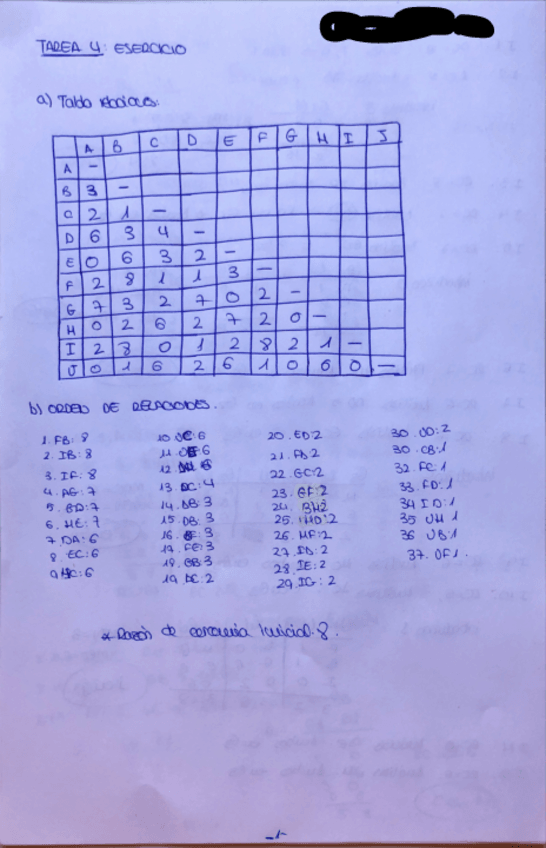 TAREA 4: EJERCICIO
a) Tabla relaciones:
A B C D E F G H I J
A -
B 3 -
C 2 1 -
D 6 3 4 -
E 0 6 3 2 -
F 2 8 1 1 3 -
G 7 3 2 7 0 2 -
H 0 2 6 2 7 2 0 -
I 2 8 0 1 2 8 2 1 -
J 0 1 6 2 6 1 0 6 0 -
b) ORDEN DE RELACIONES.
1. FB: 8
2. IB: 8
3. IF: 8
4. AG: 7
5. GD: 7
6. HE: 7
7. DA: 6
8. EC: 6
9. HC: 6
10. JC: 6
11. JE: 6
12. JH: 6
13. DC: 4
14. AB: 3
15. DB: 3
16. : 3
17. FE: 3
18. GB: 3
19. AC: 2
20. ED: 2
21. FA: 2
22. GC: 2
23. GF: 2
24. BH2
25. HD: 2
26. HF: 2
27. : 2
28. IE: 2
29. IG: 2
30. JD: 2
30. CB: 1
32. FC: 1
33. FD: 1
34 ID: 1
35 JH 1
36 JB 1
37. JF 1.
* Razón de cercanía inicial: 8.
-1-